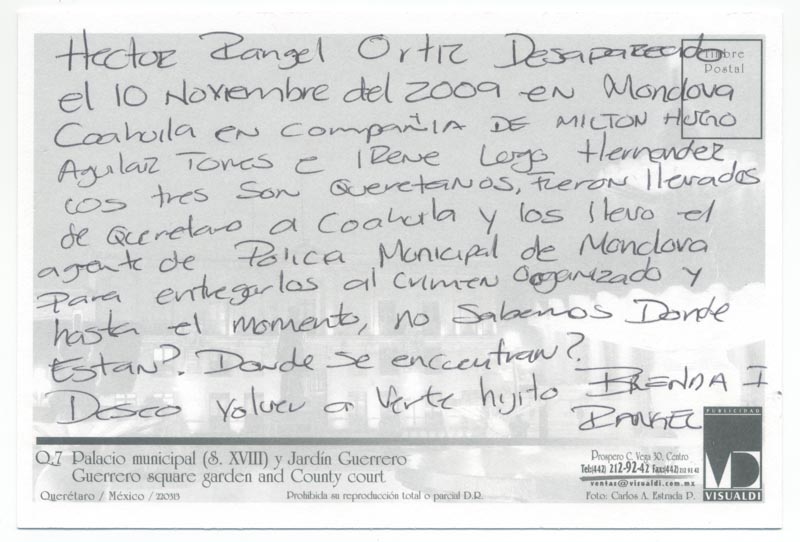 Hector Rangel Ortiz Desaparecido
Timbre
Postal
el 10 Noviembre del 2009 en Mondova
Coahuila en compañia DE MILTON HUGO
Aguilar Torres e IRENE Lugo Hernandez
Los tres son Queretanos, fueron llevados
de Queretaro a Coahuila y los llevo el
agente de Policia Municipal de Mondova
Para entregarlos al crimen Organizado y
hasta el momento, no Sabemos Donde
Estan?. Donde se encuentran?
Deseo volver a Verte hijito BRENDA I
RANGEL
PUBLICIDAD
VD
VISUALDI
Q.7 Palacio municipal (S. XVIII) y Jardín Guerrero
Guerrero square garden and County court
Querétaro / México / 220313
Prohibida su reproducción total o parcial D.R.
Prospero C. Vega 30, Centro
Tels:(442) 212-92-42 Fax:(442) 212 92 42
ventas@visualdi.com.mx
Foto: Carlos A. Estrada P.